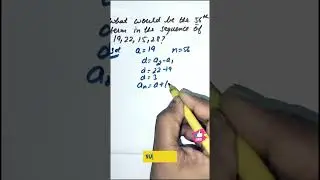 What would be the 56th
term in the sequence of
19, 22, 25, 28?
Sol a = 19 n = 56
d = a₂ - a₁
d = 22 - 19
d = 3
aₙ = a + (